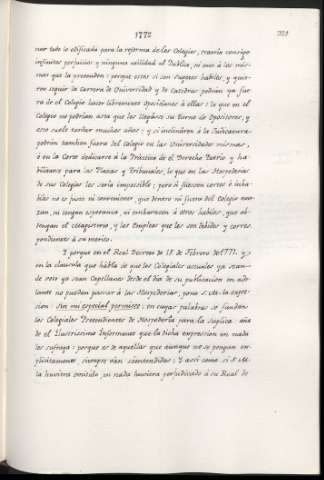 1772
nar todo lo edificado para la reforma de los Colegios, traeria consigo
infinitos perjuicios y ninguna utilidad al Publico, ni aun á los mis-
mos que la pretenden: porque estos si son sugetos habiles, y quie-
ren seguir la Carrera de Universidad y de Catedras podrán ya fue-
ra de el Colegio hacer libremente oposiciones á ellas: lo que en el
Colegio no podrian asta que les llegáse su turno de Opositores, y
eso suele tardar muchos años: y si inclináren á la Judicatura
podrán tambien fuera del Colegio en las Universidades mismas,
ó en la Corte dedicarse á la Práctica de el Derecho Patrio y ha-
bilitarse para las Plazas y Tribunales, lo que en las Hospederias
de sus Colegios les seria imposible; pero si fuesen cortos é inha-
biles no es justo ni conveniente, que dentro ni fuera del Colegio
ni tengan esperanza, ni embarazen á otros habiles, que ob-
tengan el Magisterio, y los Empleos que les son debidos y corres
pondientes á su merito.
Y porque en el Real Decreto de 18 de Febrero de 1771. y
en la clausula que habla de que los Colegiales actuales ya sean
de voto ya sean Capellanes desde el dia de su publicacion en ade-
lante no puedan pasar á las Hospederias, pone S. M. la expre-
sion: Sin mi especial permiso: en cuyas palabras se fundan
los Colegiales Pretendientes de Hospederia para la suplica: aña
de el Ilustrissimo Informante que la dicha expression en nada
les sufraga: porque es de aquellas que aunque no se pongan ex-
plicitamente, siempre van sobreentendidas: Y assi como si S. M.
la huviera omitido, en nada huviera perjudicado á su Real de